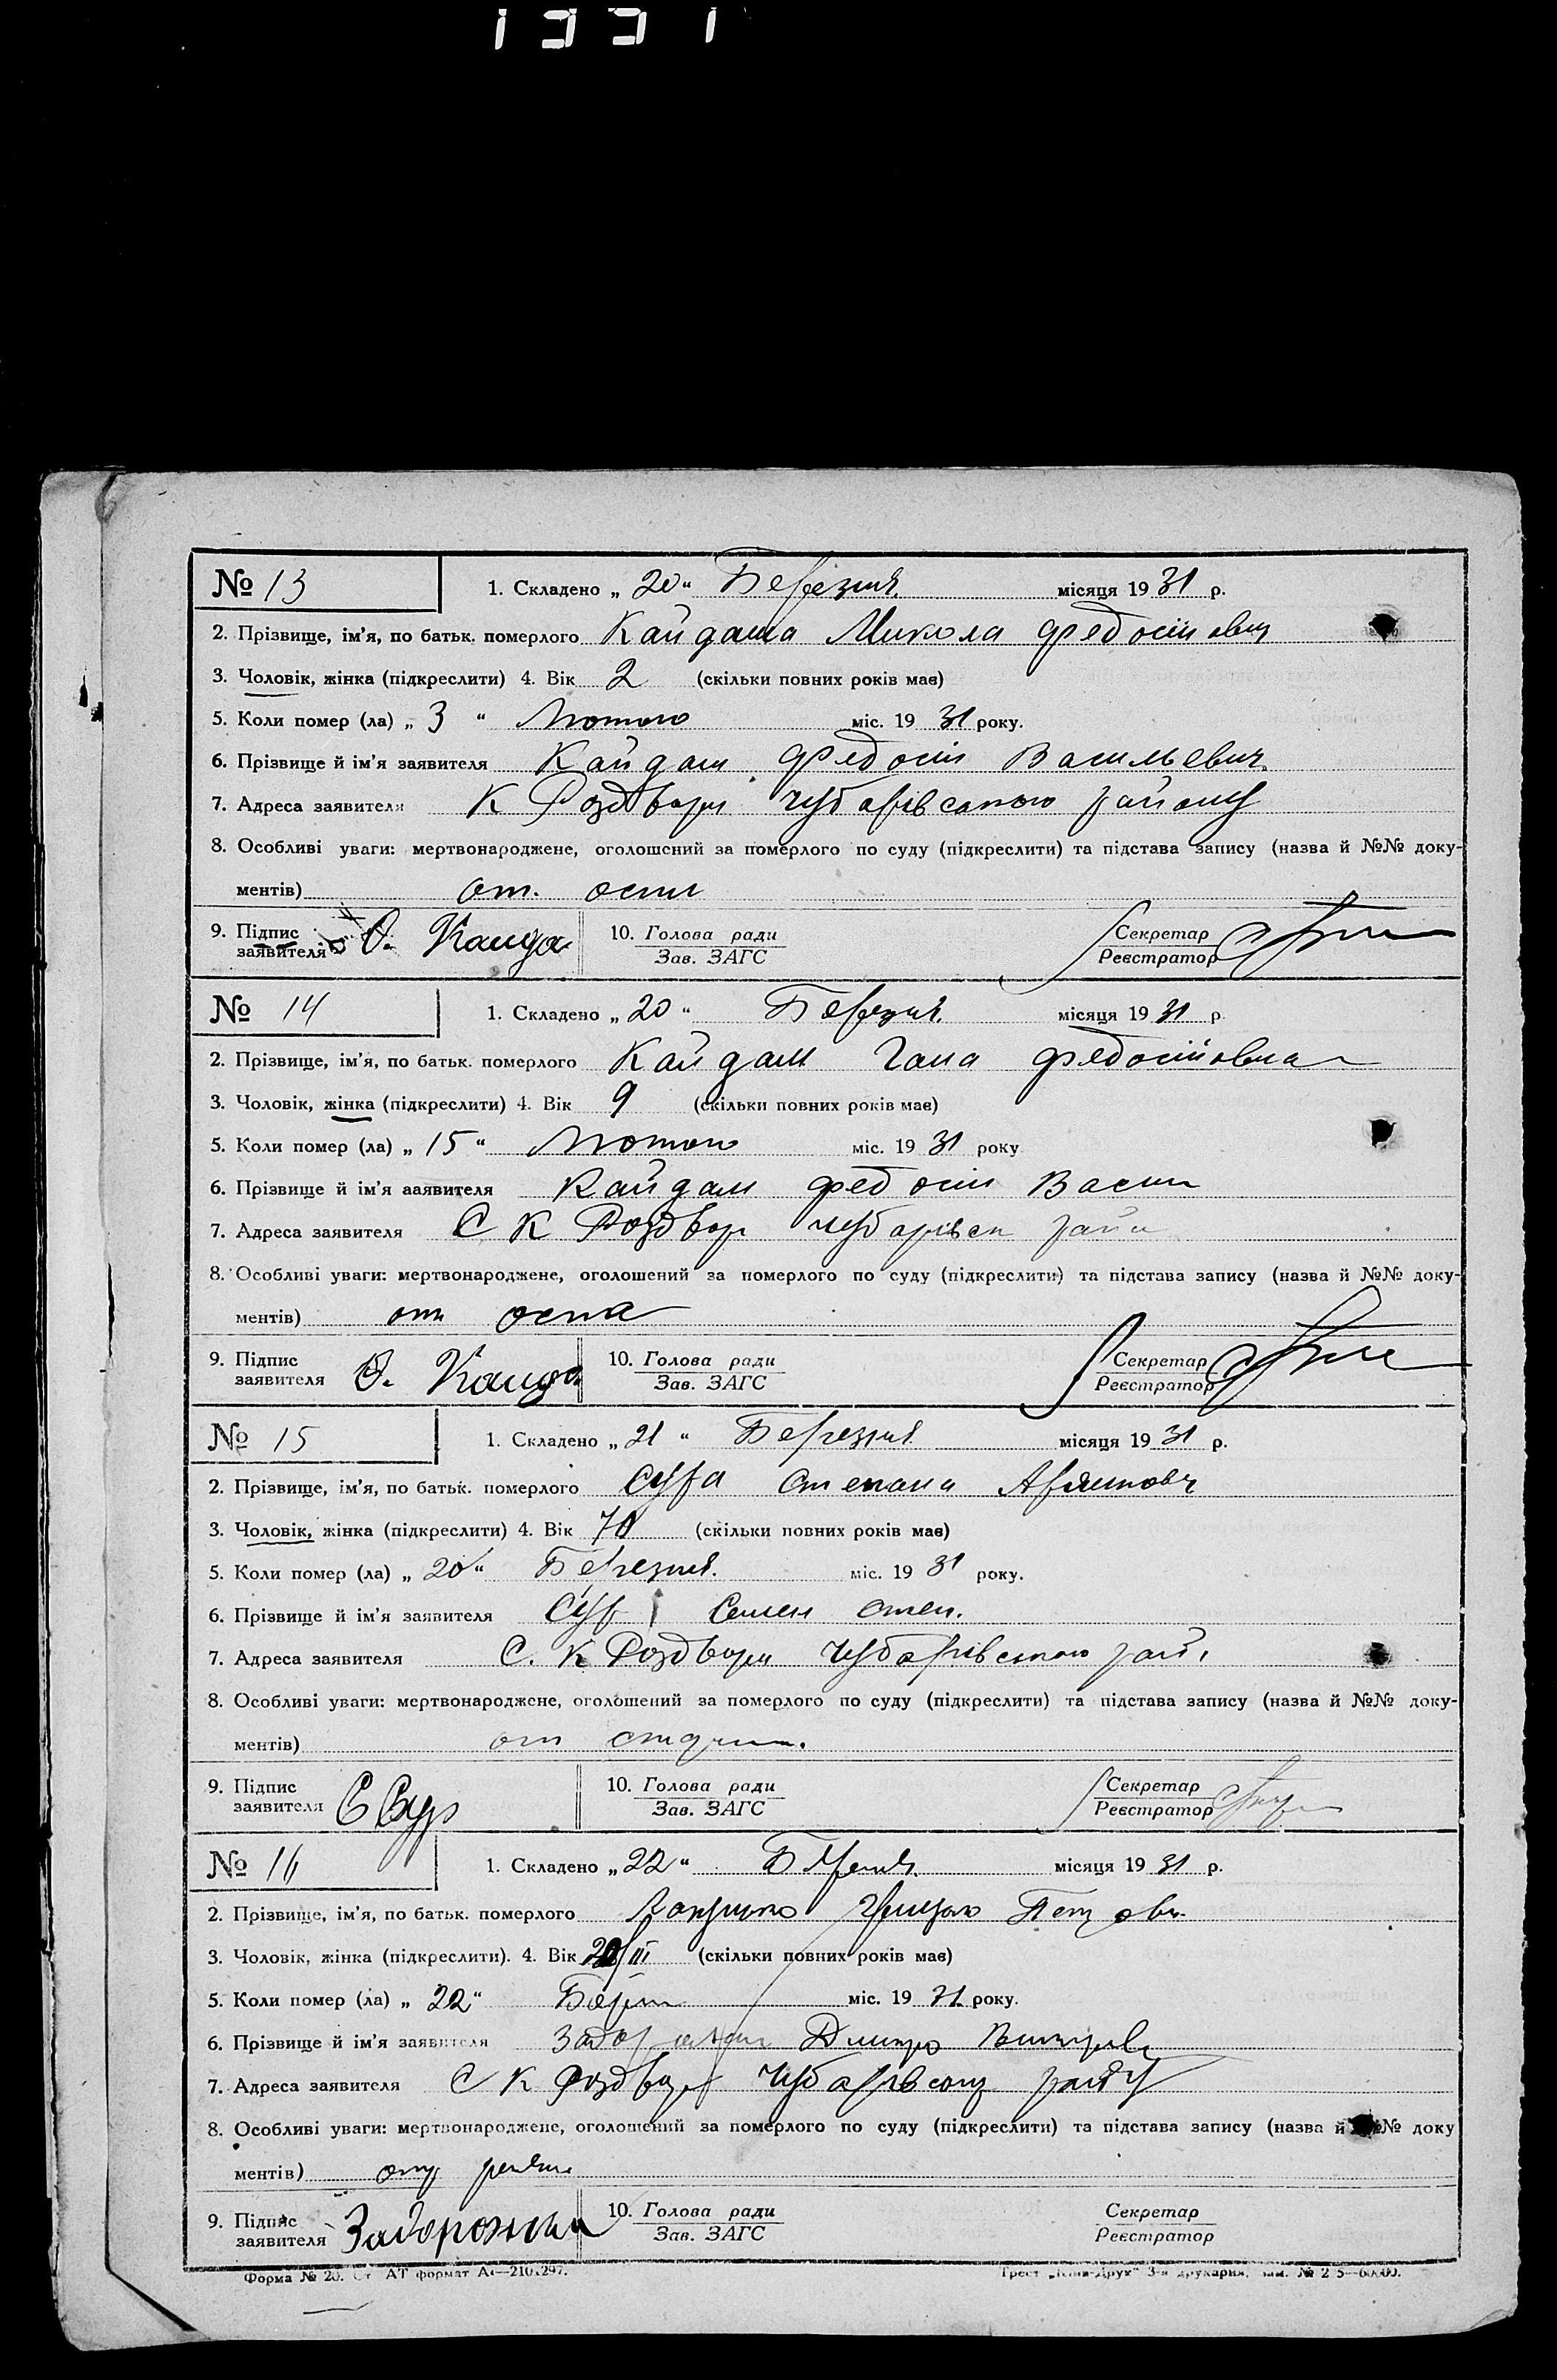 1931
№ 13 1. Складено „ 20 “ Березня місяця 19 31 р.
2. Прізвище, ім'я, по батьк. померлого Кайдаша Микола Федосійович
3. Чоловік, жінка (підкреслити) 4. Вік 2 (скільки повних років має)
5. Коли помер (ла) „ 3 “ Лютого міс. 19 31 року.
6. Прізвище й ім'я заявителя Кайдаш Федосій Васильевич
7. Адреса заявителя К Роздори Чубарівського району
8. Особливі уваги: мертвонароджене, оголошений за померлого по суду (підкреслити) та підстава запису (назва й №№ доку-
ментів) от. оспи
9. Підпис 10. Голова ради Секретар
заявителя Зав. ЗАГС Реєстратор
№ 14 1. Складено „ 20 “ Березня місяця 19 31 р
2. Прізвище, ім'я, по батьк. померлого Кайдаш Гана Федосійовна
3. Чоловік, жінка (підкреслити) 4. Вік 9 (скільки повних років має)
5. Коли помер (ла) „ 15 “ Лютого міс. 19 31 року
6. Прізвище й ім'я заявителя Кайдаш Федосій Васил
7. Адреса заявителя С К Роздор Чубарівск райн
8. Особливі уваги: мертвонароджене, оголошений за померлого по суду (підкреслити) та підстава запису (назва й №№ доку-
ментів) от оспа
9. Підпис 10. Голова ради Секретар
заявителя Зав. ЗАГС Реєстратор
№ 15 1. Складено „ 21 “ Березня місяця 19 31 р.
2. Прізвище, ім'я, по батьк. померлого Сура Степана
3. Чоловік, жінка (підкреслити) 4. Вік 70 (скільки повних років має)
5. Коли помер (ла) „ 20 “ Березня міс. 19 31 року.
6. Прізвище й ім'я заявителя Сур Семен Степ.
7. Адреса заявителя С. К Роздори Чубарівського рай.
8. Особливі уваги: мертвонароджене, оголошений за померлого по суду (підкреслити) та підстава запису (назва й №№ доку-
ментів) от
9. Підпис 10. Голова ради Секретар
заявителя С Сур Зав. ЗАГС Реєстратор
№ 16 1. Складено „ 22 “ місяця 19 31 р.
2. Прізвище, ім'я, по батьк. померлого
3. Чоловік, жінка (підкреслити). 4. Вік (скільки повних років має)
5. Коли помер (ла) „ 22 “ міс. 19 31 року.
6. Прізвище й ім'я заявителя Дмитро
7. Адреса заявителя С К Роздор
8. Особливі уваги: мертвонароджене, оголошений за померлого по суду (підкреслити) та підстава запису (назва й №№ доку
ментів)
9. Підпис 10. Голова ради Секретар
заявителя Задорожни Зав. ЗАГС Реєстратор
Форма № 20. АТ формат